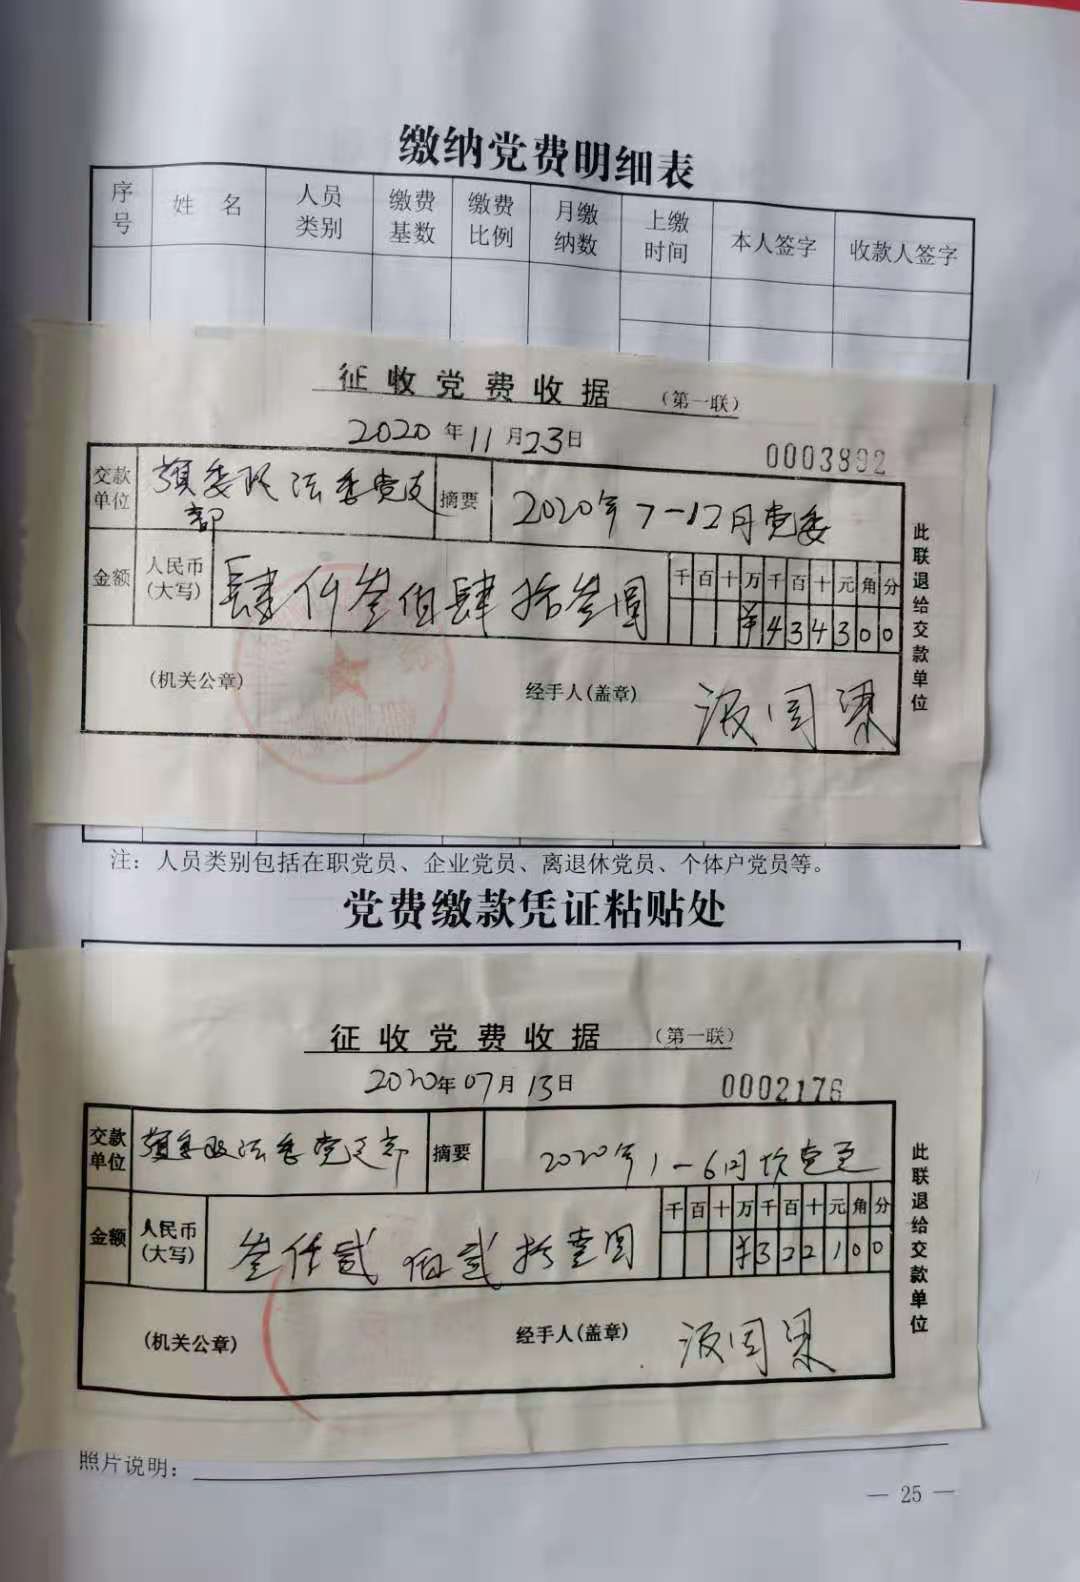 缴纳党费明细表
序号 姓 名 人员类别 缴费基数 缴费比例 月缴纳数 上缴时间 本人签字 收款人签字
征收党费收据 (第一联)
2020年11月23日 0003892
交款单位 旗委政法委党支部 摘要 2020年7-12月党委
金额 人民币(大写) 肆仟叁佰肆拾叁圆 千百十万千百十元角分
¥434300
(机关公章) 经手人(盖章)
此联退给交款单位
注：人员类别包括在职党员、企业党员、离退休党员、个体户党员等。
党费缴款凭证粘贴处
征收党费收据 (第一联)
2020年07月13日 0002176
交款单位 旗委政法委党支部 摘要 2020年1-6月
金额 人民币(大写) 叁仟贰佰贰拾壹圆 千百十万千百十元角分
¥322100
(机关公章) 经手人(盖章)
此联退给交款单位
照片说明：
— 25 —